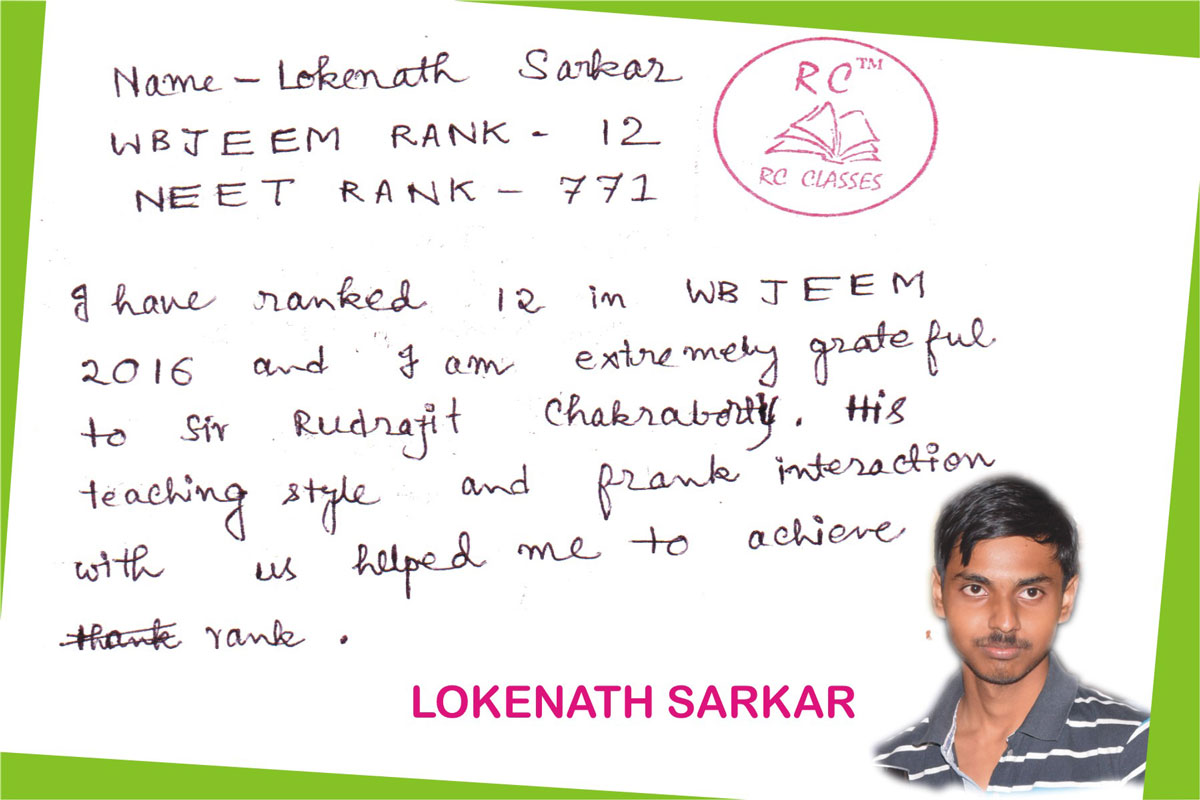 Name – Lokenath Sarkar
WBJEEM RANK - 12
NEET RANK – 771
RC™
RC CLASSES
I have ranked 12 in WBJEEM
2016 and I am extremely grateful
to Sir Rudrajit Chakraborty. His
teaching style and frank interaction
with us helped me to achieve
thank rank.
LOKENATH SARKAR